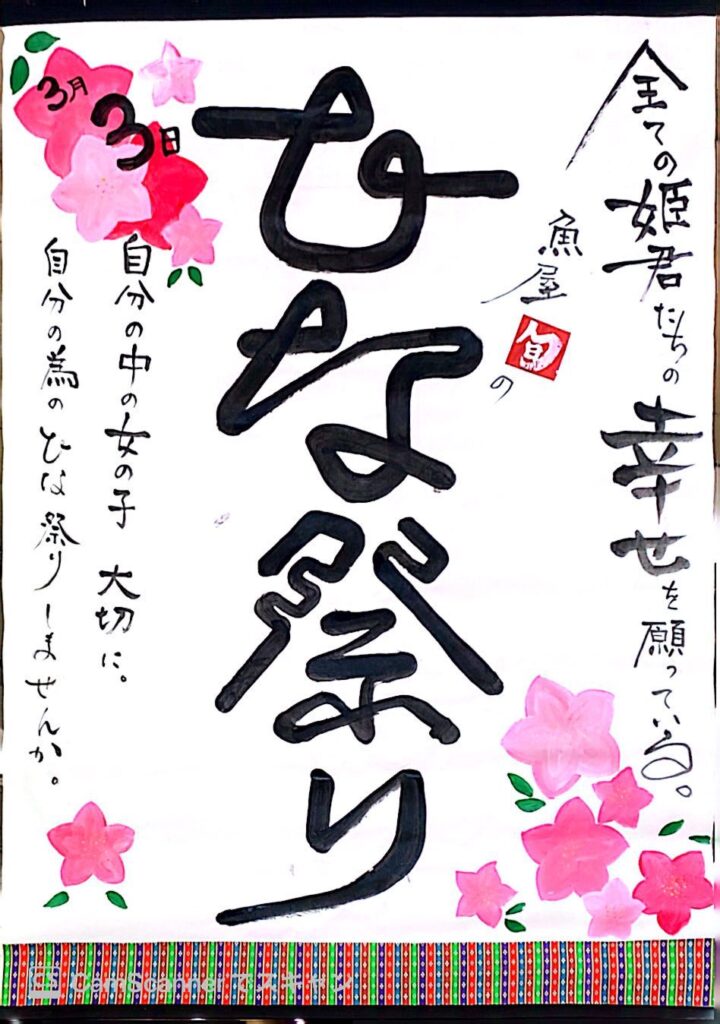 全ての姫君たちの幸せを願っている。
魚屋旬の
ひな祭り
3月
3日
自分の中の女の子 大切に。
自分の為のひな祭りしませんか。
CS CamScannerでスキャン